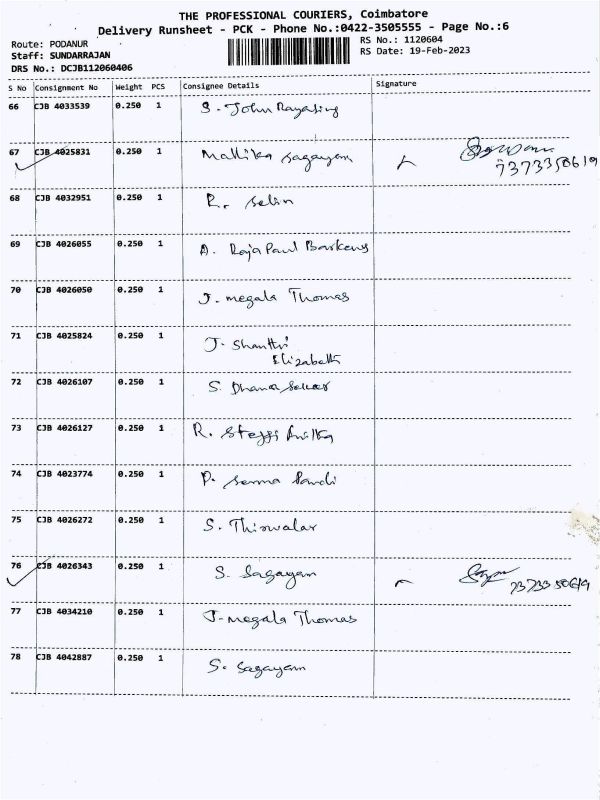 THE PROFESSIONAL COURIERS, Coimbatore
Delivery Runsheet - PCK - Phone No.:0422-3505555 - Page No.:6
Route: PODANUR
RS No.: 1120604
Staff: SUNDARRAJAN
RS Date: 19-Feb-2023
DRS No.: DCJB112060406
S No Consignment No Weight PCS Consignee Details Signature
66 CJB 4033539 0.250 1 S. John
67 CJB 4025831 0.250 1 Mallika Sagayam
7373350619
68 CJB 4032951 0.250 1 R. Selin
69 CJB 4026055 0.250 1 A. Raja Paul
70 CJB 4026050 0.250 1 J. megala Thomas
71 CJB 4025824 0.250 1 J. Shanthi
Elizabeth
72 CJB 4026107 0.250 1 S. Dhana Sekar
73 CJB 4026127 0.250 1 R. Steffi
74 CJB 4023774 0.250 1 P.
75 CJB 4026272 0.250 1 S. Thirvalar
76 CJB 4026343 0.250 1 S. Sagayam
7373350619
77 CJB 4034210 0.250 1 J. megala Thomas
78 CJB 4042887 0.250 1 S. Sagayam